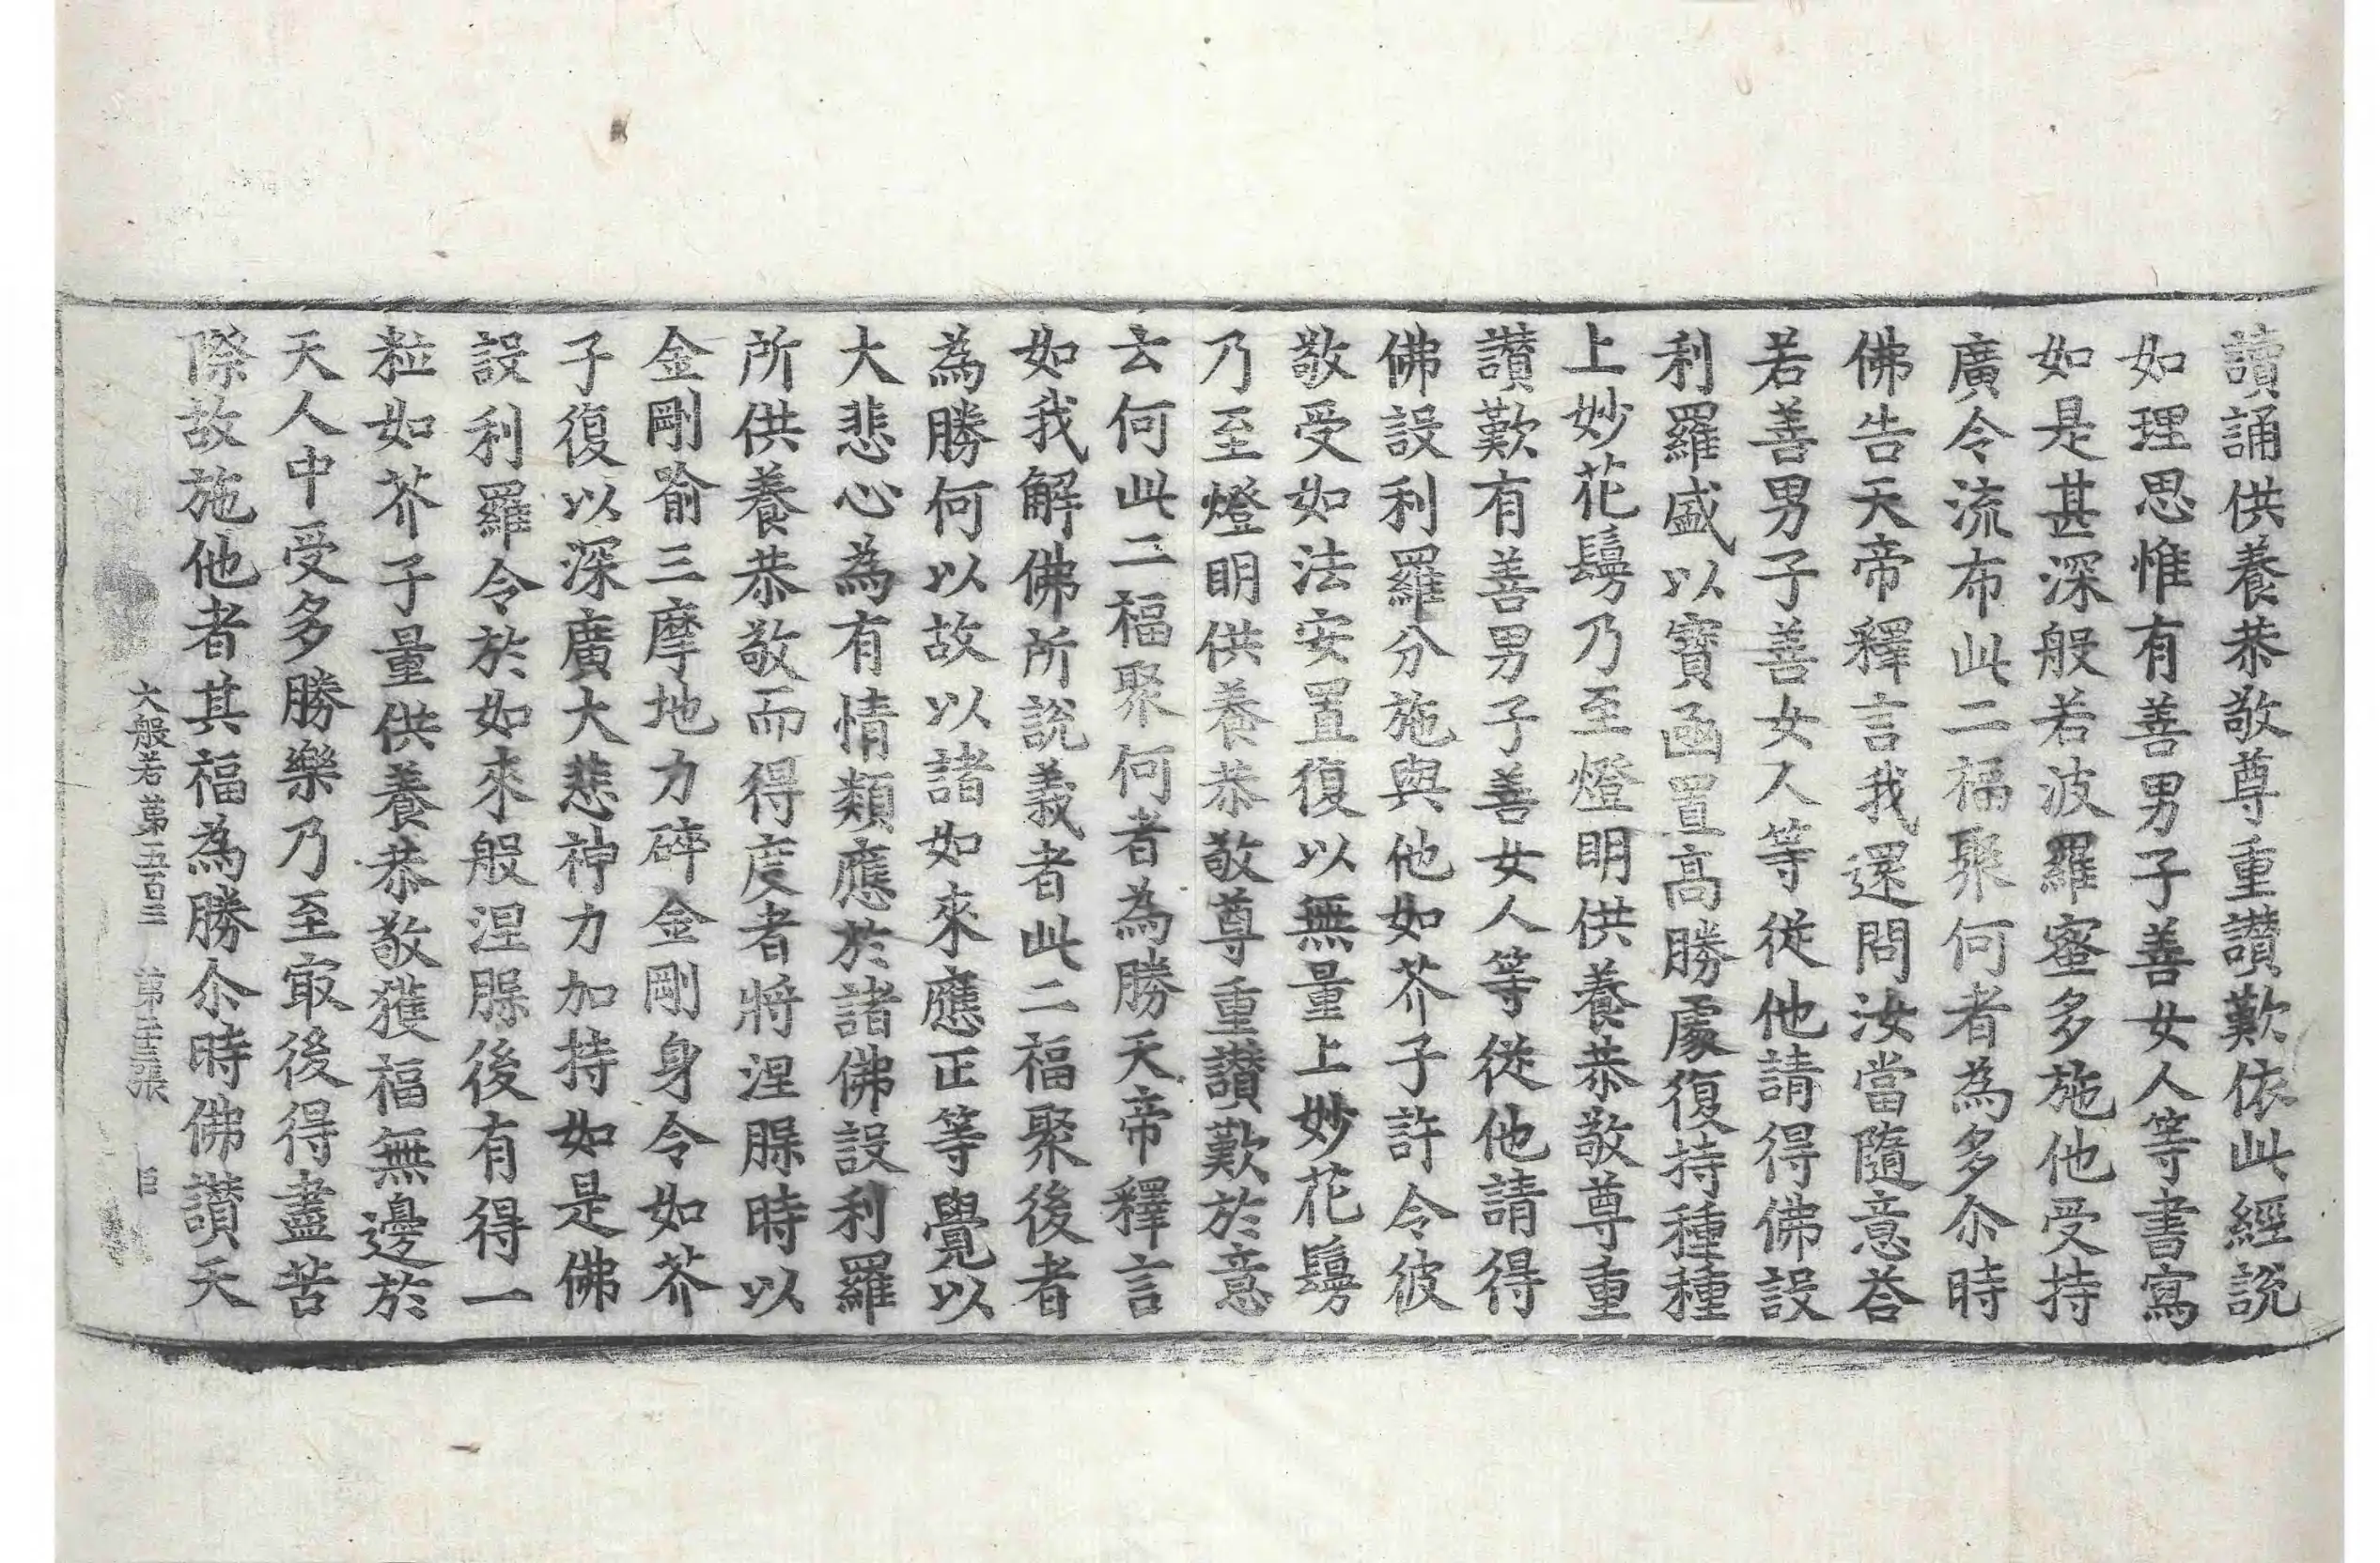 讀誦供養恭敬尊重讚歎依此經說
如理思惟有善男子善女人等書寫
如是甚深般若波羅蜜多施他受持
廣令流布此二福聚何者為多尒時
佛告天帝釋言我還問汝當隨意荅
若善男子善女人等從他請得佛設
利羅盛以寶函置高勝處復持種種
上妙花鬘乃至燈明供養恭敬尊重
讚歎有善男子善女人等從他請得
佛設利羅分施與他如芥子許令彼
敬受如法安置復以無量上妙花鬘
乃至燈明供養恭敬尊重讚歎於意
云何此二福聚何者為勝天帝釋言
如我解佛所說義者此二福聚後者
為勝何以故以諸如來應正等覺以
大悲心為有情類應於諸佛設利羅
所供養恭敬而得度者將涅槃時以
金剛喻三摩地力碎金剛身令如芥
子復以深廣大悲神力加持如是佛
設利羅令於如來般涅槃後有得一
粒如芥子量供養恭敬獲福無邊於
天人中受多勝樂乃至㝡後得盡苦
際故施他者其福為勝尒時佛讚天
大般若第五百三 第張